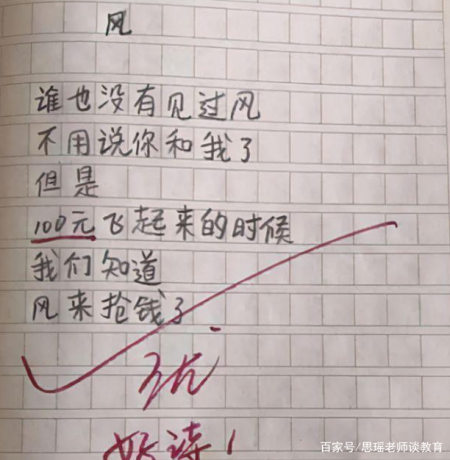 风
谁也没有见过风
不用说你和我了
但是
100元飞起来的时候
我们知道
风来抢钱了
优
好诗！
百家号/思瑶老师谈教育